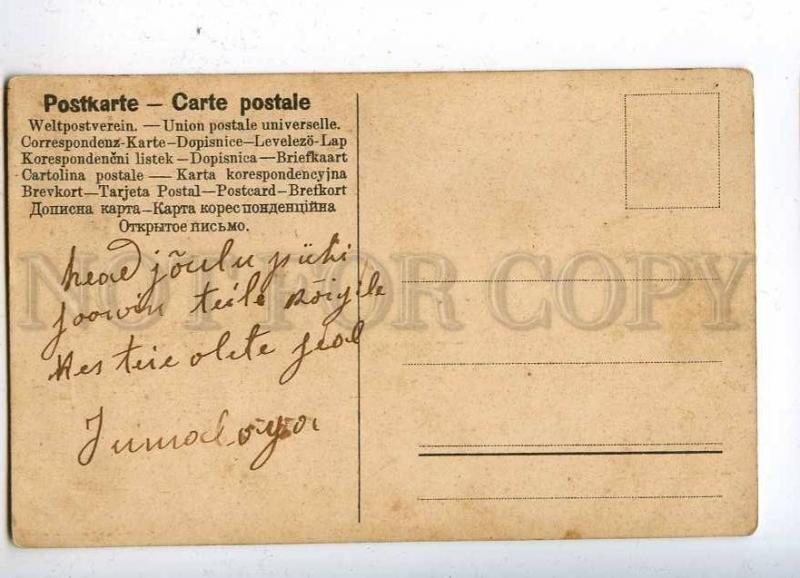 Postkarte – Carte postale
Weltpostverein. — Union postale universelle.
Correspondenz-Karte–Dopisnice–Levelező-Lap
Korespondenčni listek – Dopisnica — Briefkaart
Cartolina postale — Karta korespondencyjna
Brevkort—Tarjeta Postal—Postcard–Brefkort
Дописна карта–Карта кореспонденційна
Открытое письмо.
head jõulu pühi
soowin teile kõigile
Kes teie olete seal
Jumalaga
NOT FOR COPY